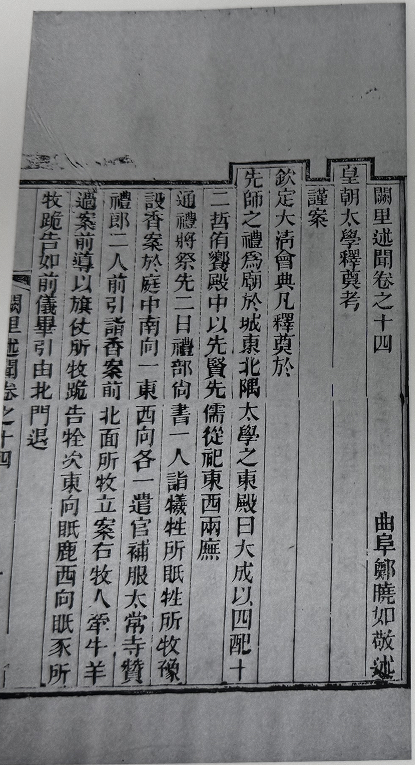 闕里述聞卷之十四
曲阜鄭曉如敬述
皇朝太學釋奠考
謹案
欽定大清會典凡釋奠於
先師之禮爲廟於城東北隅太學之東殿曰大成以四配十
二哲侑饗殿中以先賢先儒從祀東西兩廡
通禮將祭先二日禮部尙書一人詣犧牲所眂牲所牧豫
設香案於庭中南向一東西向各一遣官補服太常寺贊
禮郎二人前引詣香案前北面所牧立案右牧人牽牛羊
過案前導以旗仗所牧跪告牷次東向眂鹿西向眂豕所
牧跪告如前儀畢引由北門退
闕里述聞卷之十四
一